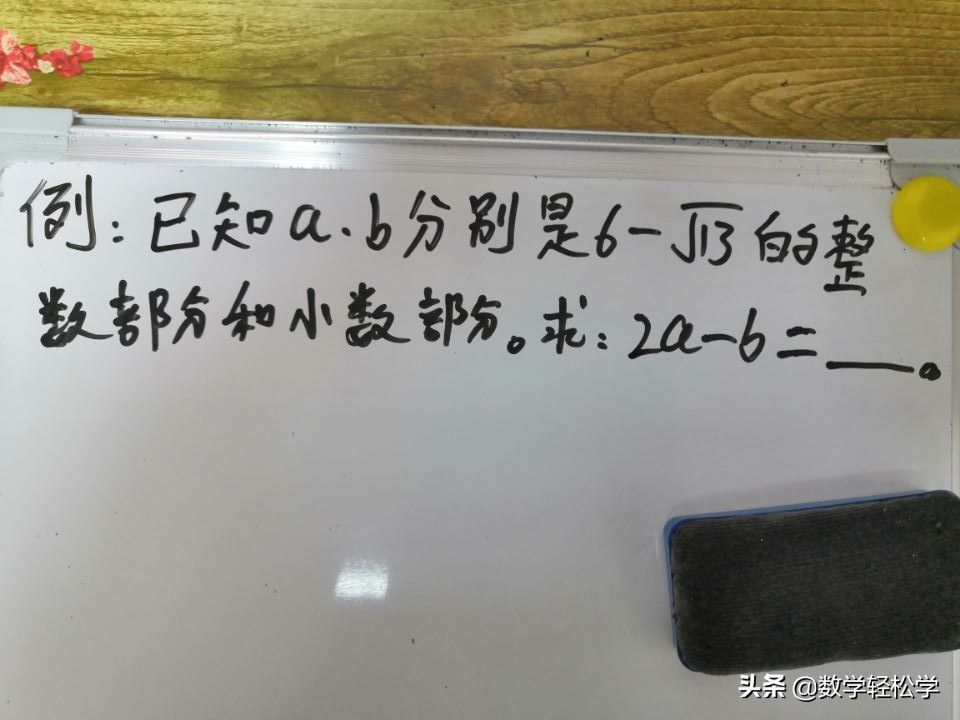 例：已知a.b分别是6-√13的整
数部分和小数部分。求：2a-b=___。
头条 @数学轻松学